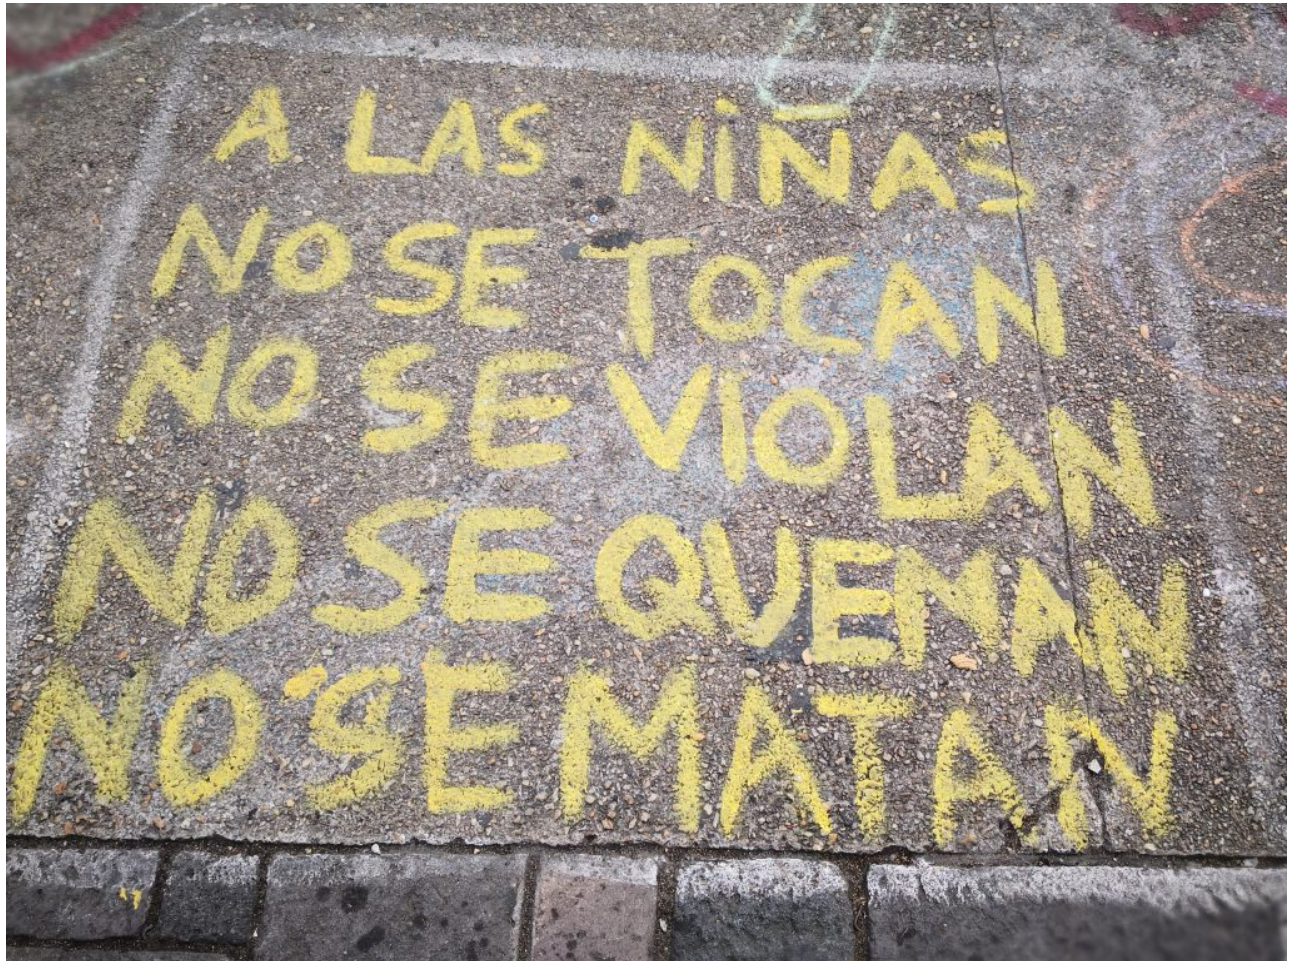 A LAS NIÑAS
NO SE TOCAN
NO SE VIOLAN
NO SE QUEMAN
NO SE MATAN